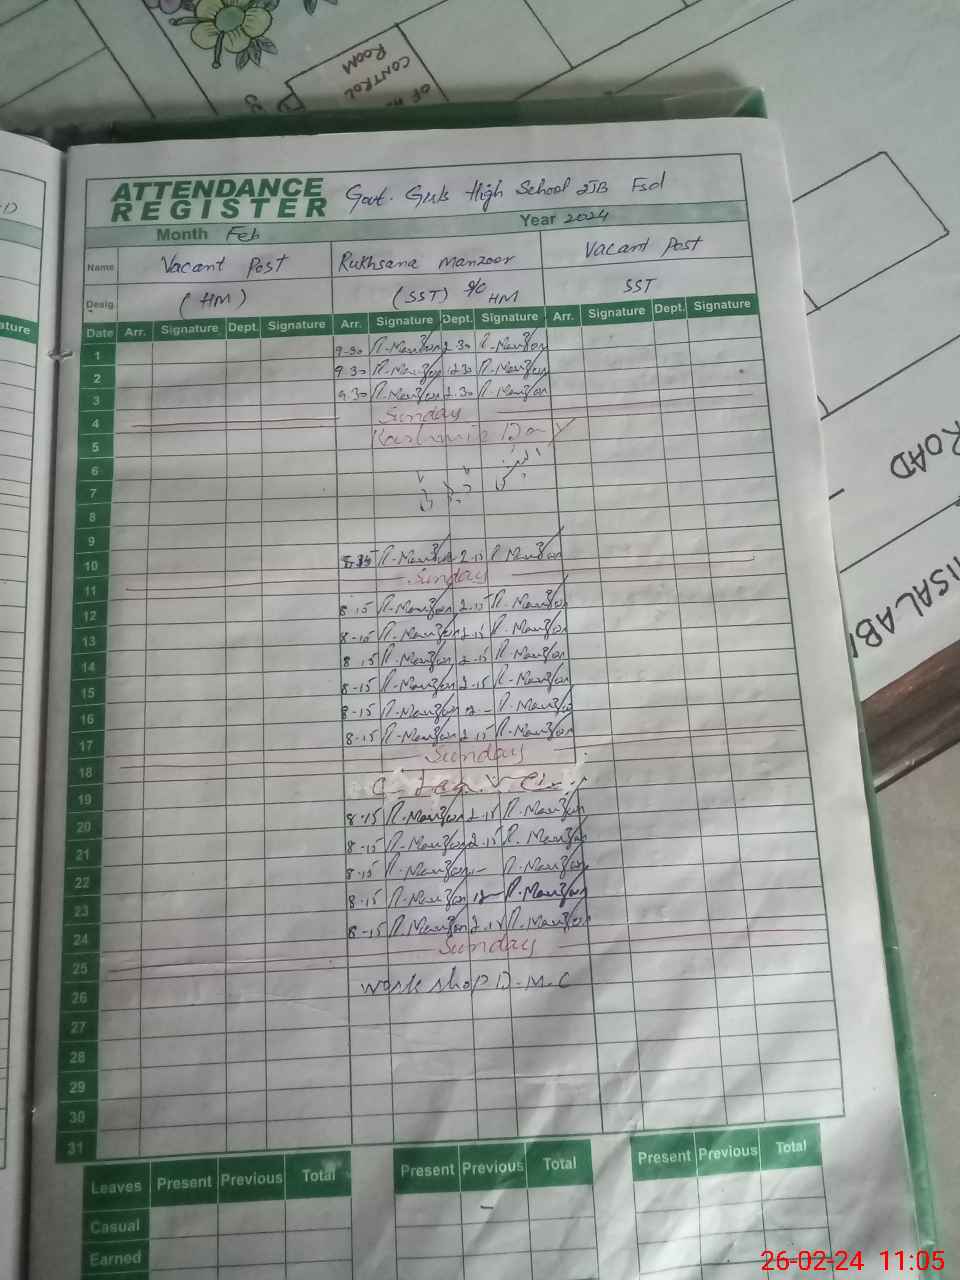 CONTROL
ROOM
ROAD
ATTENDANCE
REGISTER
Govt. Girls High School 2JB Fsd
Month Feb
Year 2024
Name Vacant Post Rukhsana Manzoor Vacant Post
Desig. (HM) (SST) HM SST
Date Arr. Signature Dept. Signature Arr. Signature Dept. Signature Arr. Signature Dept. Signature
1 9-30 R.Manzoor 2.30 R.Manzoor
2 9.30 R.Manzoor 2.30 R.Manzoor
3 9.30 R.Manzoor 2.30 R.Manzoor
4 Sunday
5 Kashmir Day
6
7
8
9
10 R.Manzoor 2.15 R.Manzoor
11 Sunday
12 8.15 R.Manzoor 2.15 R.Manzoor
13 8-15 R.Manzoor 2.15 R.Manzoor
14 8.15 R.Manzoor 2.15 R.Manzoor
15 8-15 R.Manzoor 2.15 R.Manzoor
16 8-15 R.Manzoor 12- R.Manzoor
17 8-15 R.Manzoor 2.15 R.Manzoor
18 Sunday
19
20 8.15 R.Manzoor 2.15 R.Manzoor
21 8-15 R.Manzoor 2.15 R.Manzoor
22 8-15 R.Manzoor R.Manzoor
23 8-15 R.Manzoor 12- R.Manzoor
24 8-15 R.Manzoor 2.15 R.Manzoor
25 Sunday
26 Work shop D.M.C
27
28
29
30
31
Leaves Present Previous Total Present Previous Total Present Previous Total
Casual -
Earned
26-02-24 11:05